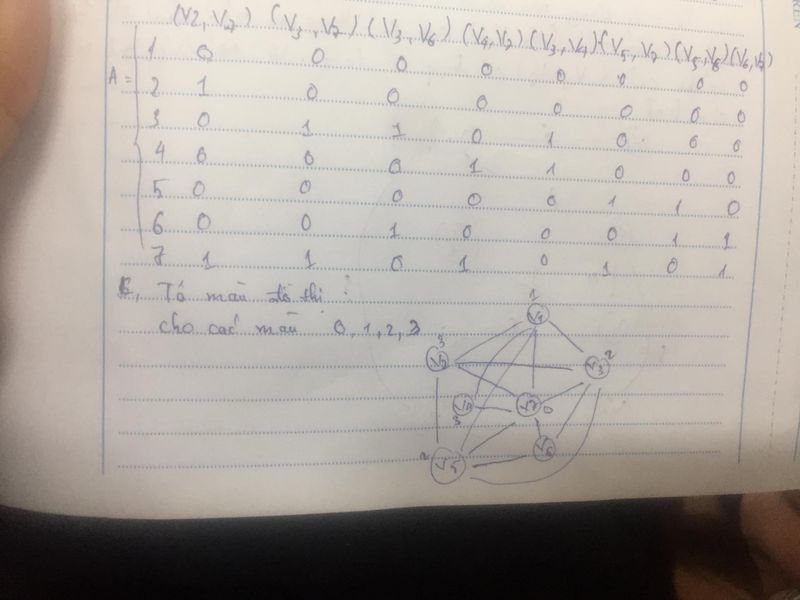 (V2, V7) (V3, V7) (V3, V6) (V4, V7) (V3, V4) (V5, V7) (V5, V6) (V6, V7)
1 0 0 0 0 0 0 0 0
A = 2 1 0 0 0 0 0 0 0
3 0 1 1 0 1 0 0 0
4 0 0 0 1 1 0 0 0
5 0 0 0 0 0 1 1 0
6 0 0 1 0 0 0 1 1
7 1 1 0 1 0 1 0 1
Tô màu đồ thị :
cho các màu 0, 1, 2, 3
1
V1
3
2
V3
3
0
2
V5
V6